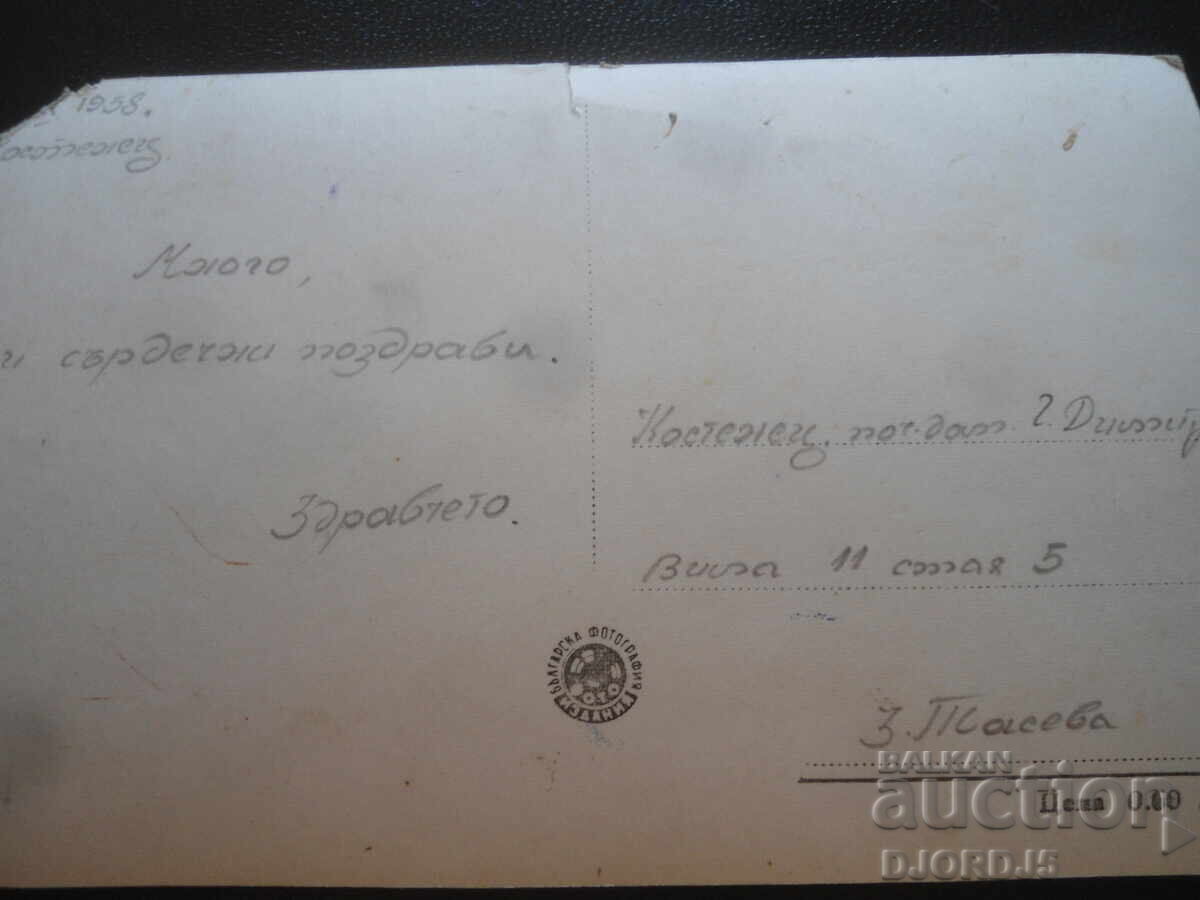 1958.
Много,
и сърдечни поздрави.
Здравчето.
Костенец, поч. дом Г. Димитр
Вила 11 стая 5
З. Тасева
БЪЛГАРСКА ФОТОГРАФИЯ
ФОТО
ИЗДАНИЯ
Цена 0.60
BALKAN
auction
DJORDJ5